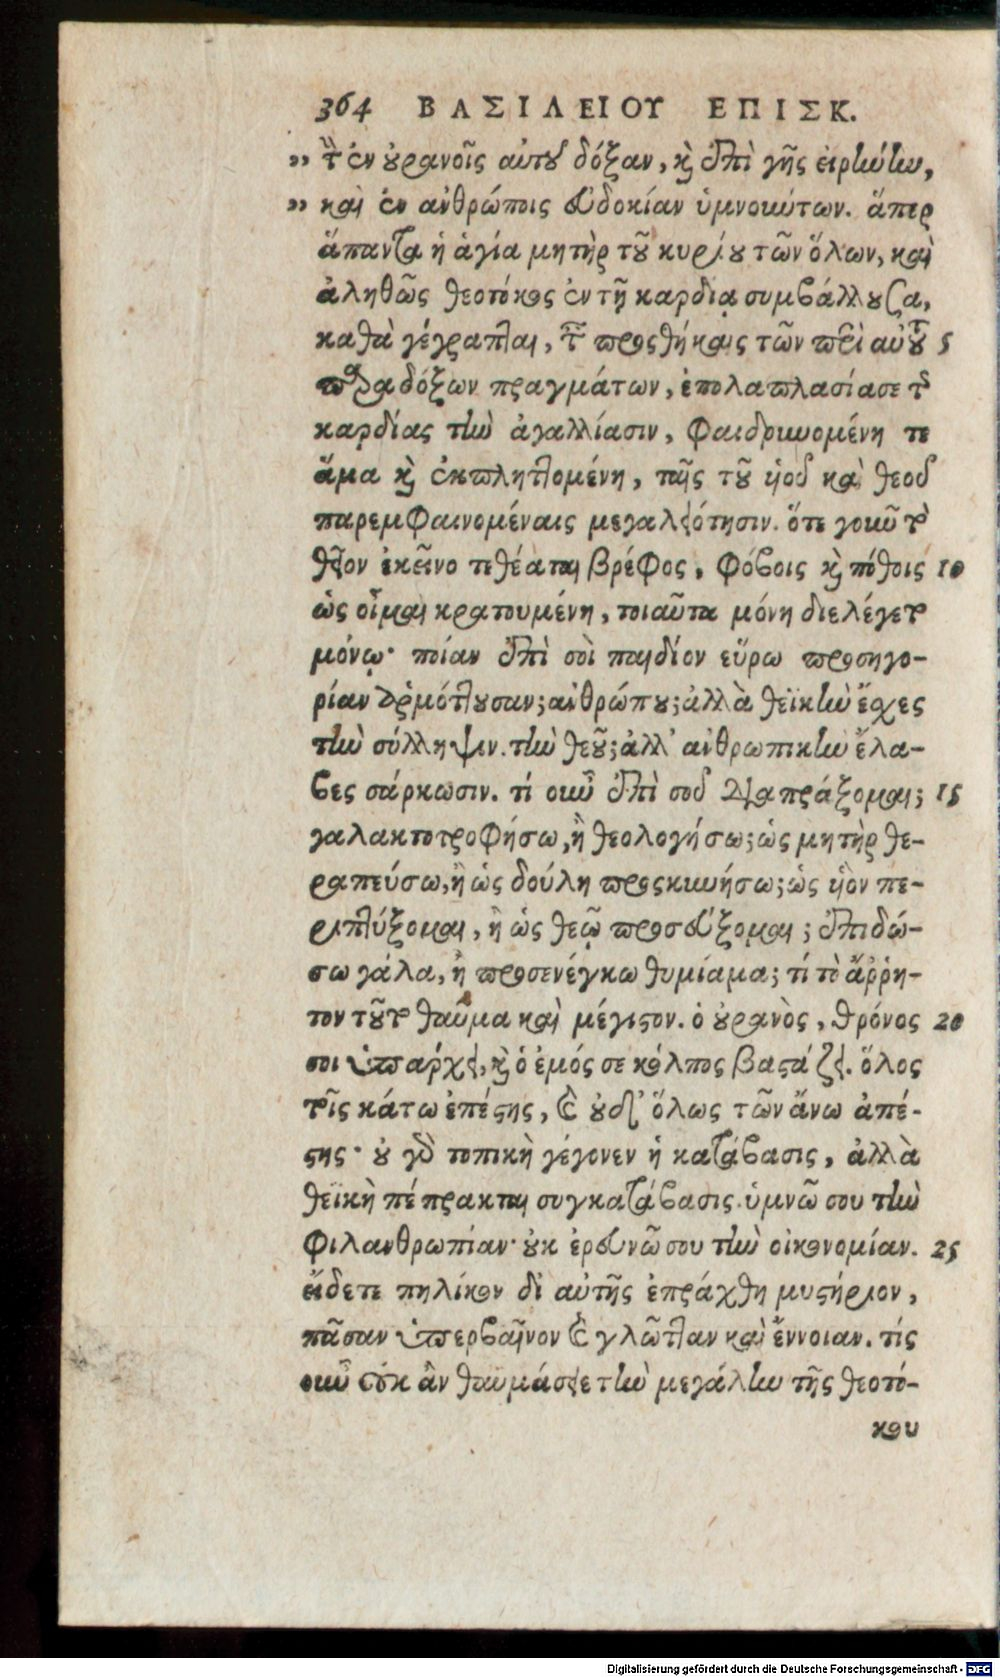 364 ΒΑΣΙΛΕΙΟΥ ΕΠΙΣΚ.
„ τ ἐν οὐρανοῖς αὐτοῦ δόξαν, καὶ ἐπὶ γῆς εἰρήνην,
„ καὶ ἐν ἀνθρώποις εὐδοκίαν ὑμνούντων. ἅπερ
ἅπαντα ἡ ἁγία μητὴρ τοῦ κυρίου τῶν ὅλων, καὶ
ἀληθῶς θεοτόκος ἐν τῇ καρδίᾳ συμβάλλουσα,
καθὰ γέγραπται, τ προσθήκαις τῶν περὶ αὐτοῦ 5
παραδόξων πραγμάτων, ἐπολαπλασίασε τῆς
καρδίας τὴν ἀγαλλίασιν, φαιδρυνομένη τε
ἅμα καὶ ἐκπληττομένη, ταῖς τοῦ υἱοῦ καὶ θεοῦ
παρεμφαινομέναις μεγαλειότησιν. ὅτε γοῦν τὸ
θεῖον ἐκεῖνο τεθέαται βρέφος, φόβοις καὶ πόθοις 10
ὡς οἶμαι κρατουμένη, τοιαῦτα μόνη διελέγετο
μόνῳ· ποίαν ἐπὶ σοὶ παιδίον εὕρω προσηγο-
ρίαν ἁρμόττουσαν; ἀνθρώπου; ἀλλὰ θεϊκὴν ἔχες
τὴν σύλληψιν. τὴν θεοῦ; ἀλλ' ἀνθρωπικὴν ἔλα-
βες σάρκωσιν. τί οὖν ἐπὶ σοῦ διαπράξομαι; 15
γαλακτοτροφήσω, ἢ θεολογήσω; ὡς μητὴρ θε-
ραπεύσω, ἢ ὡς δούλη προσκυνήσω; ὡς υἱὸν πε-
ριπτύξομαι, ἢ ὡς θεῷ προσεύξομαι; ἐπιδώ-
σω γάλα, ἢ προσενέγκω θυμίαμα; τί τὸ ἄῤῥη-
τον τοῦτο θαῦμα καὶ μέγιστον. ὁ οὐρανὸς, θρόνος 20
σοι ὑπάρχει, καὶ ὁ ἐμός σε κόλπος βαστάζει. ὅλος
τοῖς κάτω ἐπέστης, καὶ οὐδ' ὅλως τῶν ἄνω ἀπέ-
στης· οὐ γὰρ τοπικὴ γέγονεν ἡ κατάβασις, ἀλλὰ
θεϊκὴ πέπρακται συγκατάβασις. ὑμνῶ σου τὴν
φιλανθρωπίαν· οὐκ ἐρευνῶ σου τὴν οἰκονομίαν. 25
εἴδετε πηλίκον δι αὐτῆς ἐπράχθη μυστήριον,
πᾶσαν ὑπερβαῖνον καὶ γλῶτταν καὶ ἔννοιαν. τίς
οὖν οὐκ ἂν θαυμάσειε τὴν μεγάλην τῆς θεοτό-
κου
Digitalisierung gefördert durch die Deutsche Forschungsgemeinschaft - DFG